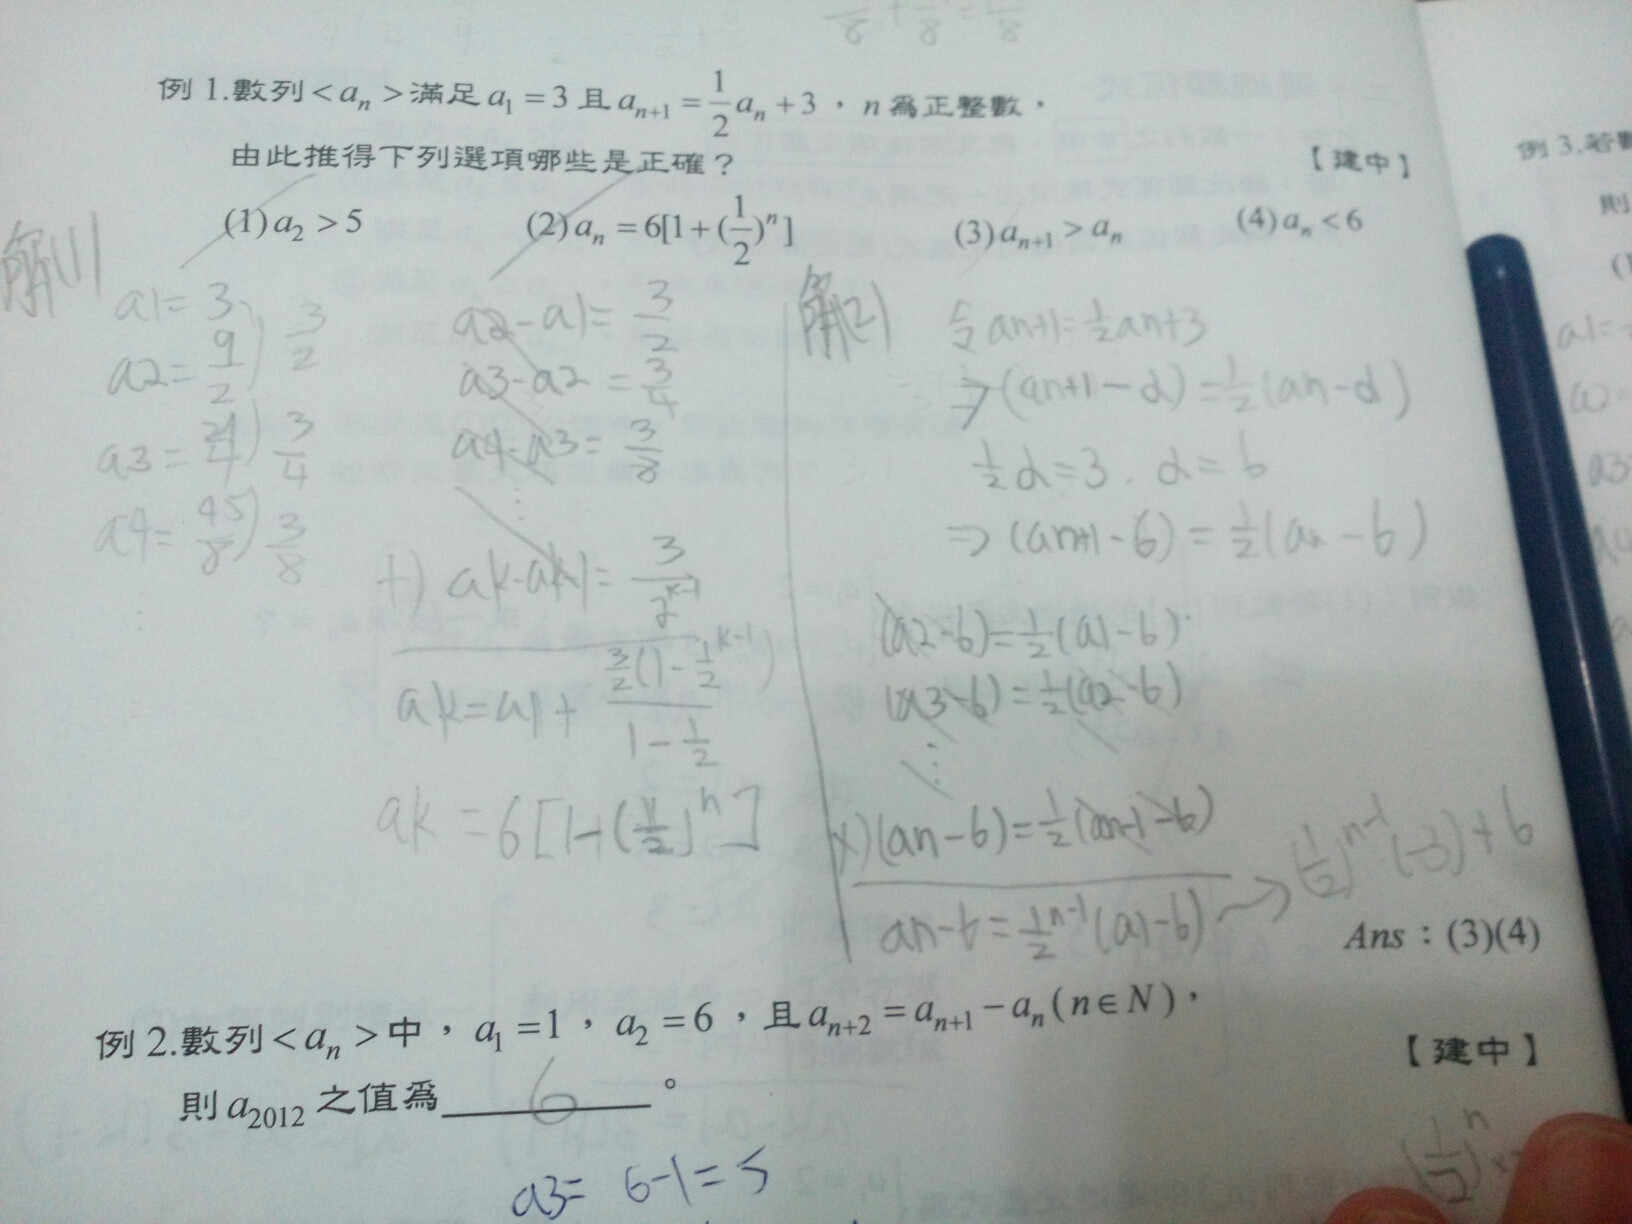 例 1.數列<aₙ>滿足 a₁ = 3 且 aₙ₊₁ = 1/2 aₙ + 3，n 為正整數，
由此推得下列選項哪些是正確？ 【建中】
(1) a₂ > 5 (2) aₙ = 6[1+(1/2)ⁿ] (3) aₙ₊₁ > aₙ (4) aₙ < 6
解(1)
a1= 3
a2= 9/2 ) 3/2
a3= 21/4 ) 3/4
a4= 45/8 ) 3/8
⋮
a2-a1= 3/2
a3-a2 = 3/4
a4-a3= 3/8
⋮
+) ak-ak-1= 3/2^(k-1)
ak=a1+ 3/2(1-1/2^(k-1)) / (1-1/2)
ak =6[1-(1/2)ⁿ]
解(2)
令 an+1=1/2an+3
⇒(an+1-α)=1/2(an-α)
1/2α=3, α=6
⇒ (an+1-6) = 1/2(an-6)
(a2-6)=1/2(a1-6)
(a3-6)=1/2(a2-6)
⋮
x)(an-6)=1/2(an-1-6)
an-6=1/2^(n-1)(a1-6) → (1/2)^(n-1)(-3)+6
Ans：(3)(4)
例 2.數列<aₙ>中，a₁ =1，a₂ =6，且 aₙ₊₂ = aₙ₊₁ − aₙ ( n∈N )， 【建中】
則 a₂₀₁₂ 之值為 6 。
a3= 6-1=5
(1/2)ⁿ
例 3.若
則
a1=